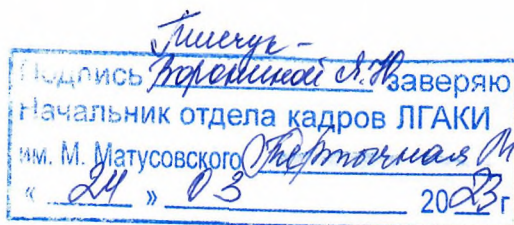 Подпись Ворониной А.Ю. заверяю
Начальник отдела кадров ЛГАКИ
им. М. Матусовского
« 24 » 03 2023 г